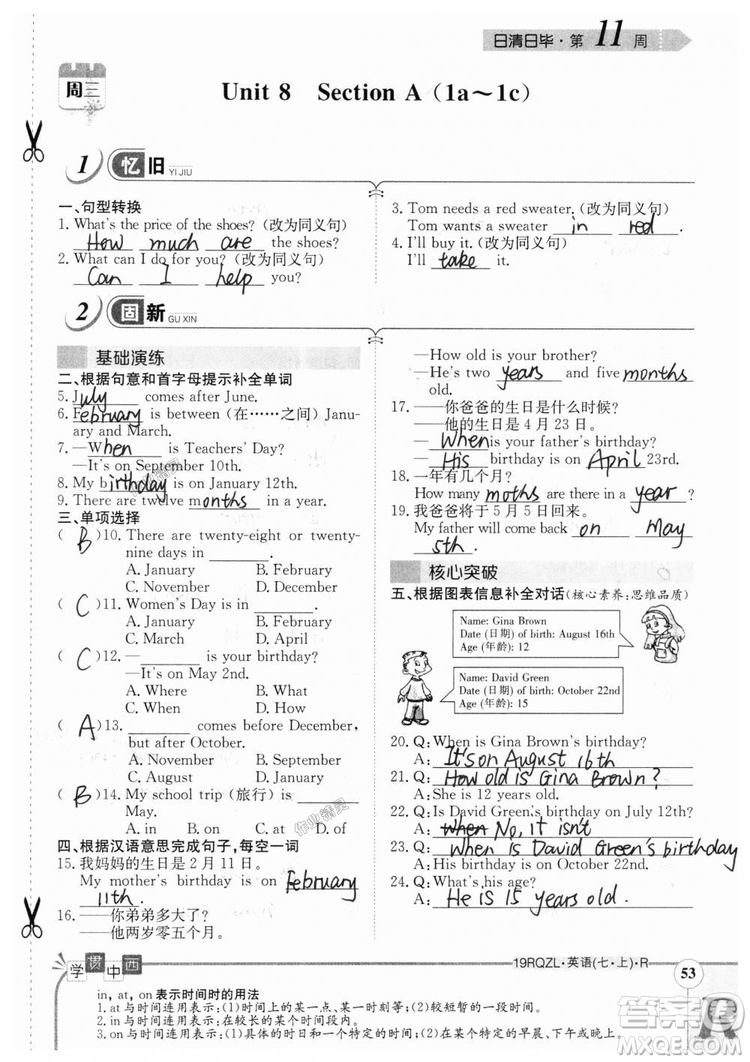 日清日毕·第11周
周三
Unit 8 Section A（1a～1c）
1 忆旧 YI JIU
一、句型转换
1. What's the price of the shoes?（改为同义句）
How much are the shoes?
2. What can I do for you?（改为同义句）
Can I help you?
3. Tom needs a red sweater.（改为同义句）
Tom wants a sweater in red.
4. I'll buy it.（改为同义句）
I'll take it.
2 固新 GU XIN
基础演练
二、根据句意和首字母提示补全单词
5. July comes after June.
6. February is between（在……之间）Janu-
ary and March.
7. —When is Teachers' Day?
—It's on September 10th.
8. My birthday is on January 12th.
9. There are twelve months in a year.
三、单项选择
( B )10. There are twenty-eight or twenty-
nine days in ________.
A. January B. February
C. November D. December
( C )11. Women's Day is in ________.
A. January B. February
C. March D. April
( C )12. —________ is your birthday?
—It's on May 2nd.
A. Where B. What
C. When D. How
( A )13. ________ comes before December,
but after October.
A. November B. September
C. August D. January
( B )14. My school trip（旅行）is ________
May.
A. in B. on C. at D. of
四、根据汉语意思完成句子，每空一词
15. 我妈妈的生日是 2 月 11 日。
My mother's birthday is on February
11th.
16. ——你弟弟多大了？
——他两岁零五个月。
—How old is your brother?
—He's two years and five months
old.
17. ——你爸爸的生日是什么时候？
——他的生日是 4 月 23 日。
—When is your father's birthday?
—His birthday is on April 23rd.
18. 一年有几个月？
How many moths are there in a year?
19. 我爸爸将于 5 月 5 日回来。
My father will come back on May
5th.
核心突破
五、根据图表信息补全对话（核心素养：思维品质）
Name: Gina Brown
Date (日期) of birth: August 16th
Age (年龄): 12
Name: David Green
Date (日期) of birth: October 22nd
Age (年龄): 15
20. Q: When is Gina Brown's birthday?
A: It's on August 16th
21. Q: How old is Gina Brown?
A: She is 12 years old.
22. Q: Is David Green's birthday on July 12th?
A: when No, it isn't
23. Q: When is David Green's birthday
A: It's on October 22nd.
24. Q: What's his age?
A: He is 15 years old.
学贯中西
19RQZL·英语(七·上)·R
53
in, at, on 表示时间时的用法
1. at 与时间连用表示：(1)时间上的某一点、某一时刻等；(2)较短暂的一段时间。
2. in 与时间连用表示：在较长的某一段时间内。
3. on 与时间连用表示：(1)日子和日期；(2)某个特定的时间和一个特定的早晨、下午或晚上。
答案圈
MXQE.COM